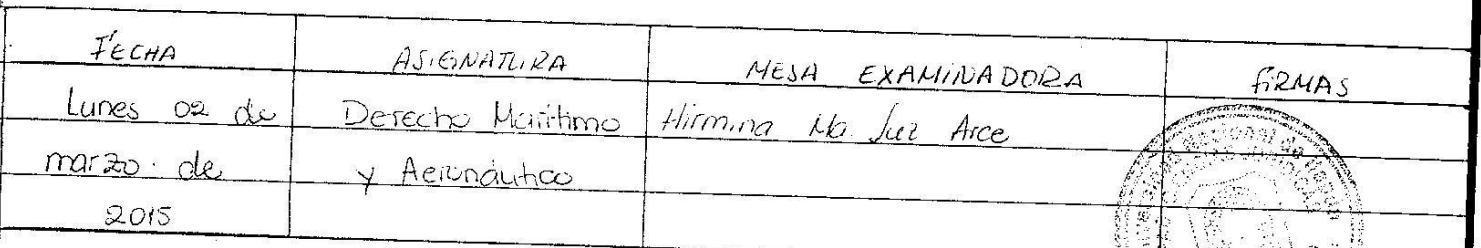 FECHA ASIGNATURA MESA EXAMINADORA FIRMAS
Lunes 02 de Derecho Marítimo Hirmina Ma Luz Arce
marzo de y Aeronáutico
2015
Nacional de